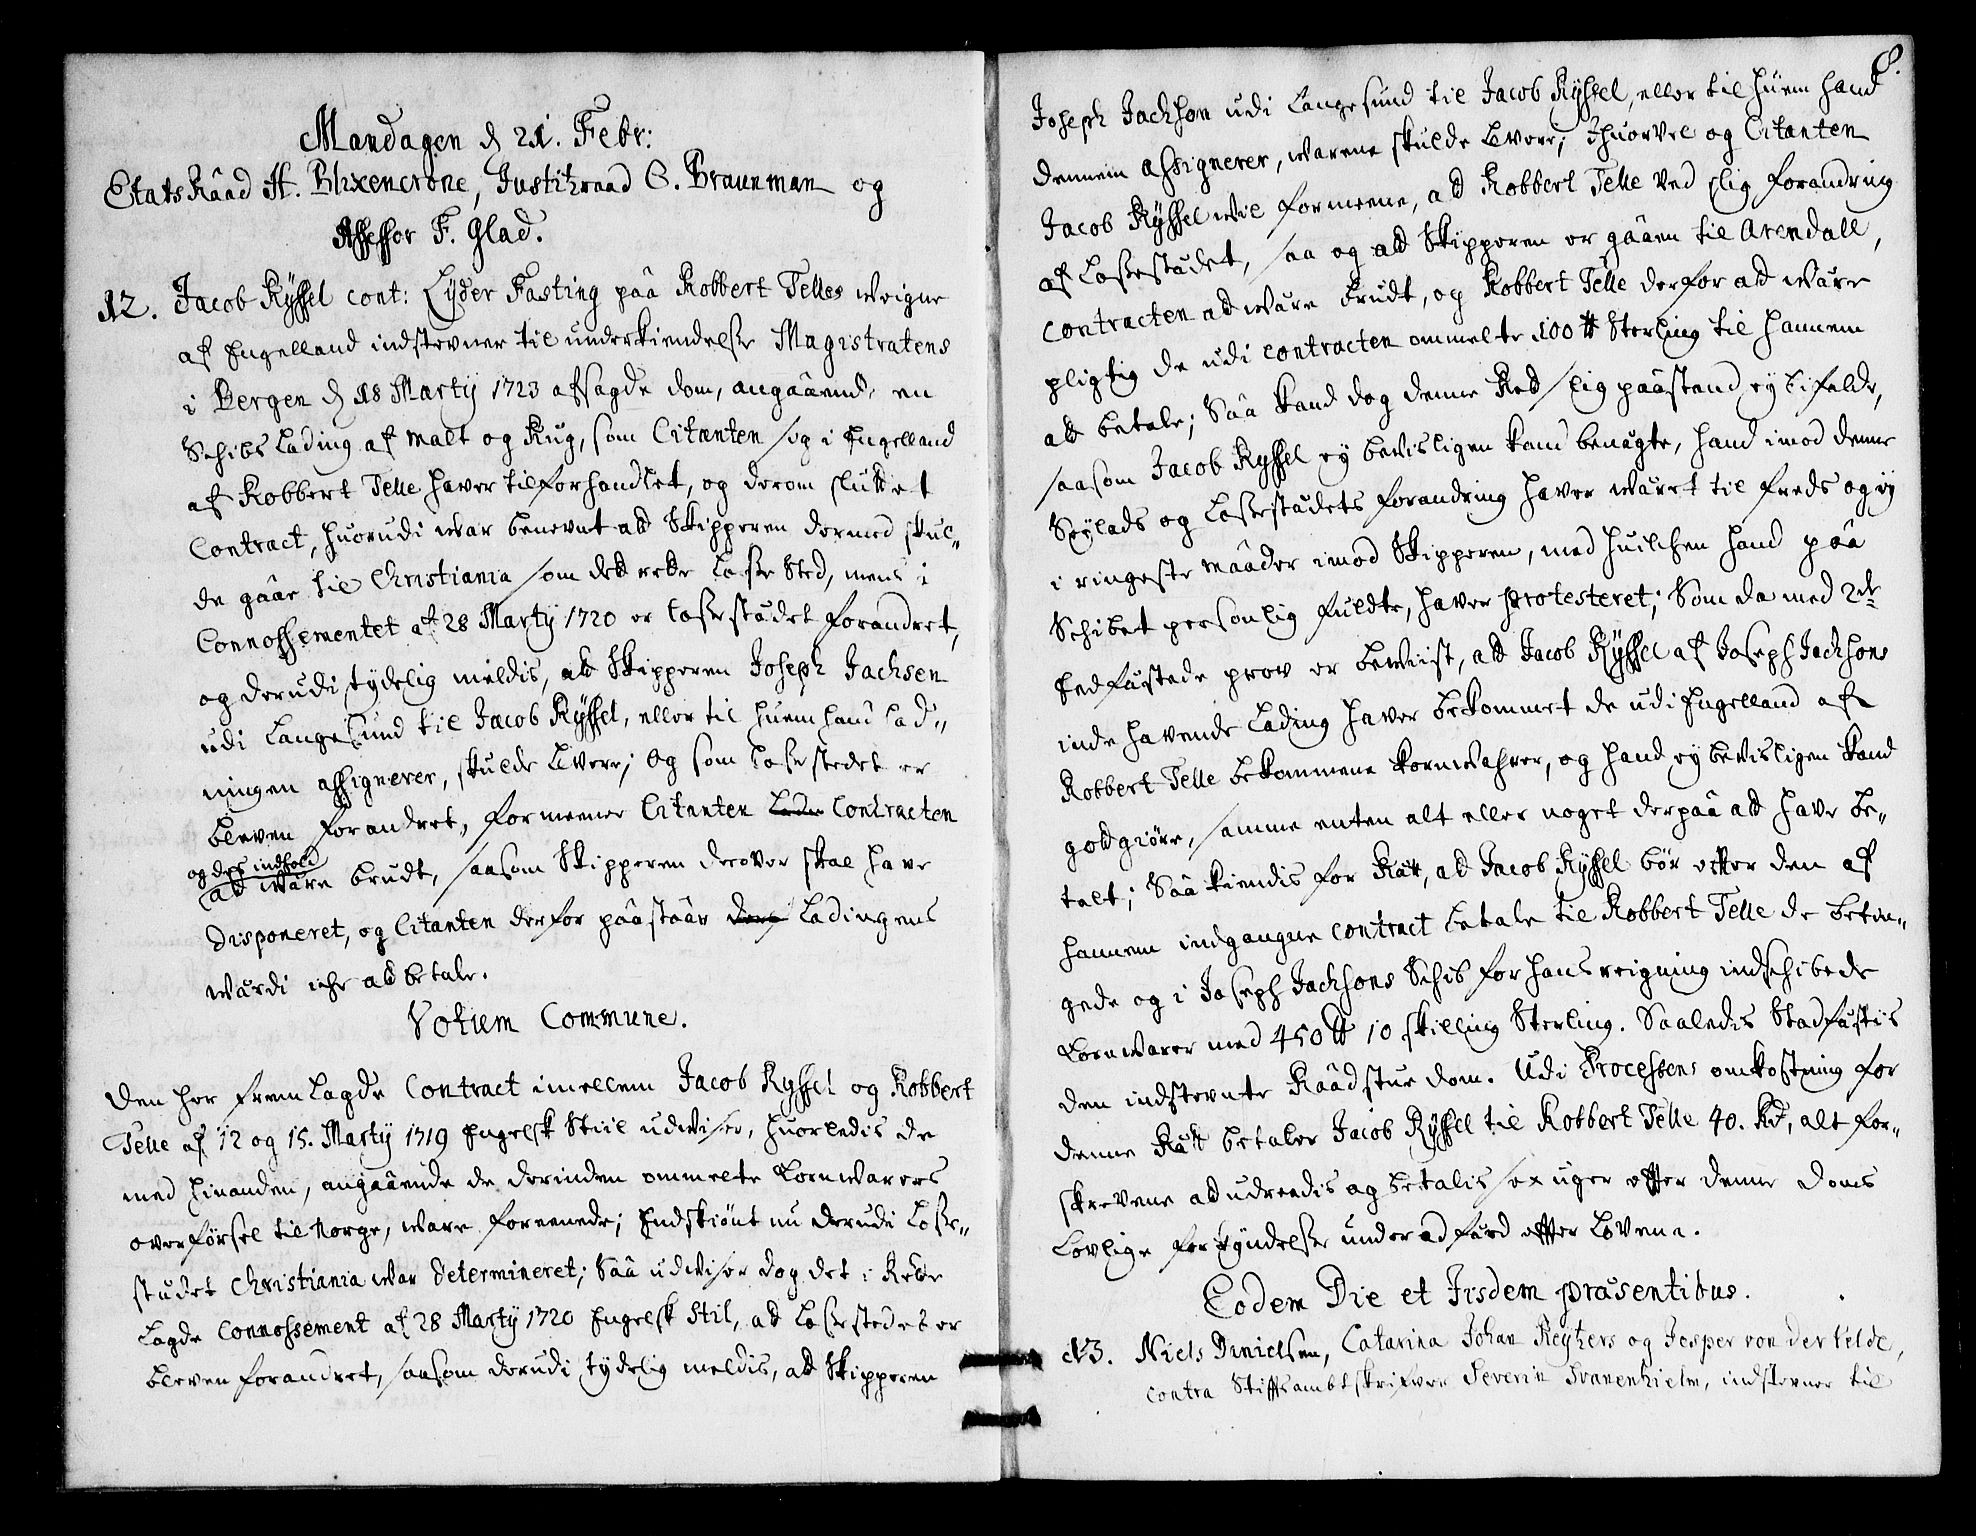 Mandagen d 21. Febr:
Etats Raad H. Blixencrone, Justitzraad C. Braunman og
Assessor F. Glad.
N2. Jacob Ryssel cont: Lyder Fasting paa Robbert Telles weigne
af Engelland indstevner til underkiendelse Magistratens
i Bergen d 18 Martij 1723 afsagde dom, angaaende en
Schibs Lading af malt og Rug, som Citanten sig i Engelland
af Robbert Telle haver tilforhandlet, og derom sluttet
Contract, huorudi war benevnt at Skipperen dermed skul-
de gaae til Christiania som det rette Losse Sted, mens i
Connossementet af 28 Martij 1720 er losse stædet forandret,
og derudi tydelig meldis, at Skipperen Joseph Jachsen
udi Langesund til Jacob Ryssel, eller til huem hand lad-
ningen assignerer, skulde levere; Og som losse stedet er
bleven forandret, formeener Citanten Contracten
og des indhold
at wære brudt, saasom Skipperen derover skal have
disponeret, og Citanten derfor paastaar Ladingens
wærdi iche at betale.
Votum Commune.
Den her fremlagde Contract imellem Jacob Ryssel og Robbert
Telle af 12 og 15. Martij 1719 Engelsk Stiil udwiser, huorledis de
med hinanden, angaaende de derinden ommelte kornwarers
overførsel til Norge, ware foreenede; Endskiønt nu derudi Losse-
stædet Christiania war determineret; Saa udwiser dog det i Rette
lagde Connossement af 28 Martij 1720 Engelsk Stil, at Losse stedet er
bleven forandret, saasom derudi tydelig meldis, at Skipperen
8.
Joseph Jackson udi Langesund til Jacob Ryssel, eller til huem hand
dennem assignerer, warene skulde levere; Ihuorvel og Citanten
Jacob Ryssel wil formeene, at Robbert Telle ved slig forandring
af Lossestædet, saa og at Skipperen er gaaen til Arendall,
contracten at wære brudt, og Robbert Telle derfor at wære
pligtig de udi contracten ommelte 100 ₶ Sterling til hannem
at betale; Saa kand dog denne Ræd slig paastand ey bifalde,
saasom Jacob Ryssel ey bevisligen kand benægte, hand imod denne
Seylads og Lossestædets forandring haver wæret til freds og ey
i ringeste maader imod Skipperen, med huilchen hand paa
Schibet personlig fuldte, haver protesteret; Som da med 2de
Eedfæstede prov er beviist, at Jacob Ryssel af Joseph Jacksons
inde havende Lading haver bekommet de udi Engelland af
Robbert Telle bekommene kornwahrer, og hand ey bevisligen kand
godgiøre, samme enten alt eller noget derpaa at have be-
talt; Saa kiendis for Ræt, at Jacob Ryssel bør efter den af
hannem indgangne contract betale til Robbert Telle de betin-
gede og i Joseph Jacksons Schib for hans reigning indschibede
kornwarer med 450 ₶ 10 skilling Sterling. Saaledis Stadfæstis
den indstevnte Raadstue dom. Udi Processens omkostning for
denne Ræt betaler Jacob Ryssel til Robbert Telle 40. Rd, alt for-
skrevene at udreedis og betalis sex uger efter denne Doms
lovlige forkyndelse under adfærd efter Lovene.
Eodem Die et Iisdem præsentibus.
N3. Niels Danielsen, Catarina Johan Reyhers og Jesper von der Velde,
contra Stiftsambtskrifver Severin Svanenhielm, indstevner til